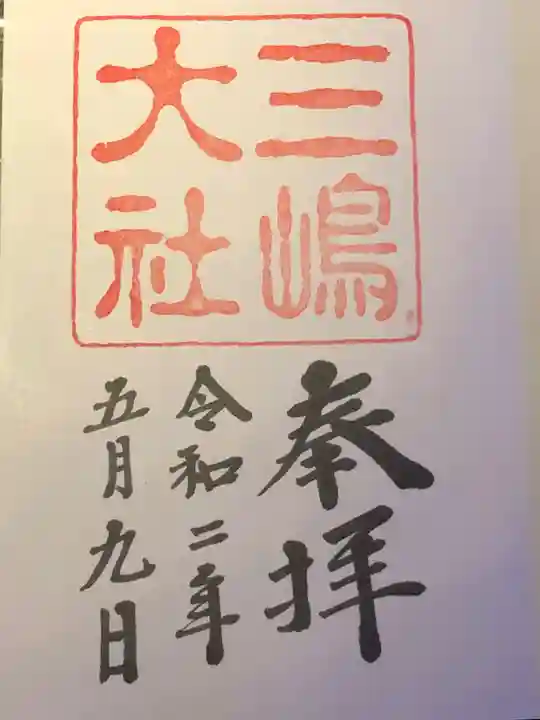 三嶋
大社
奉拝
令和二年
五月九日